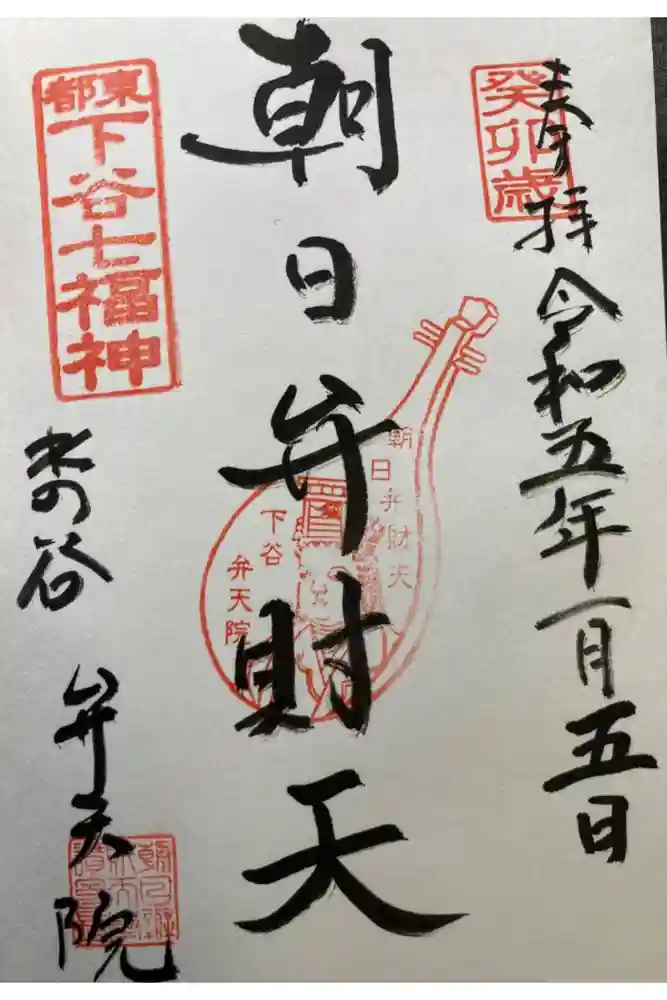 奉拝
令和五年一月五日
癸卯歳
朝日弁財天
朝日弁財天
下谷
弁天院
東都
下谷七福神
水の谷
弁天院